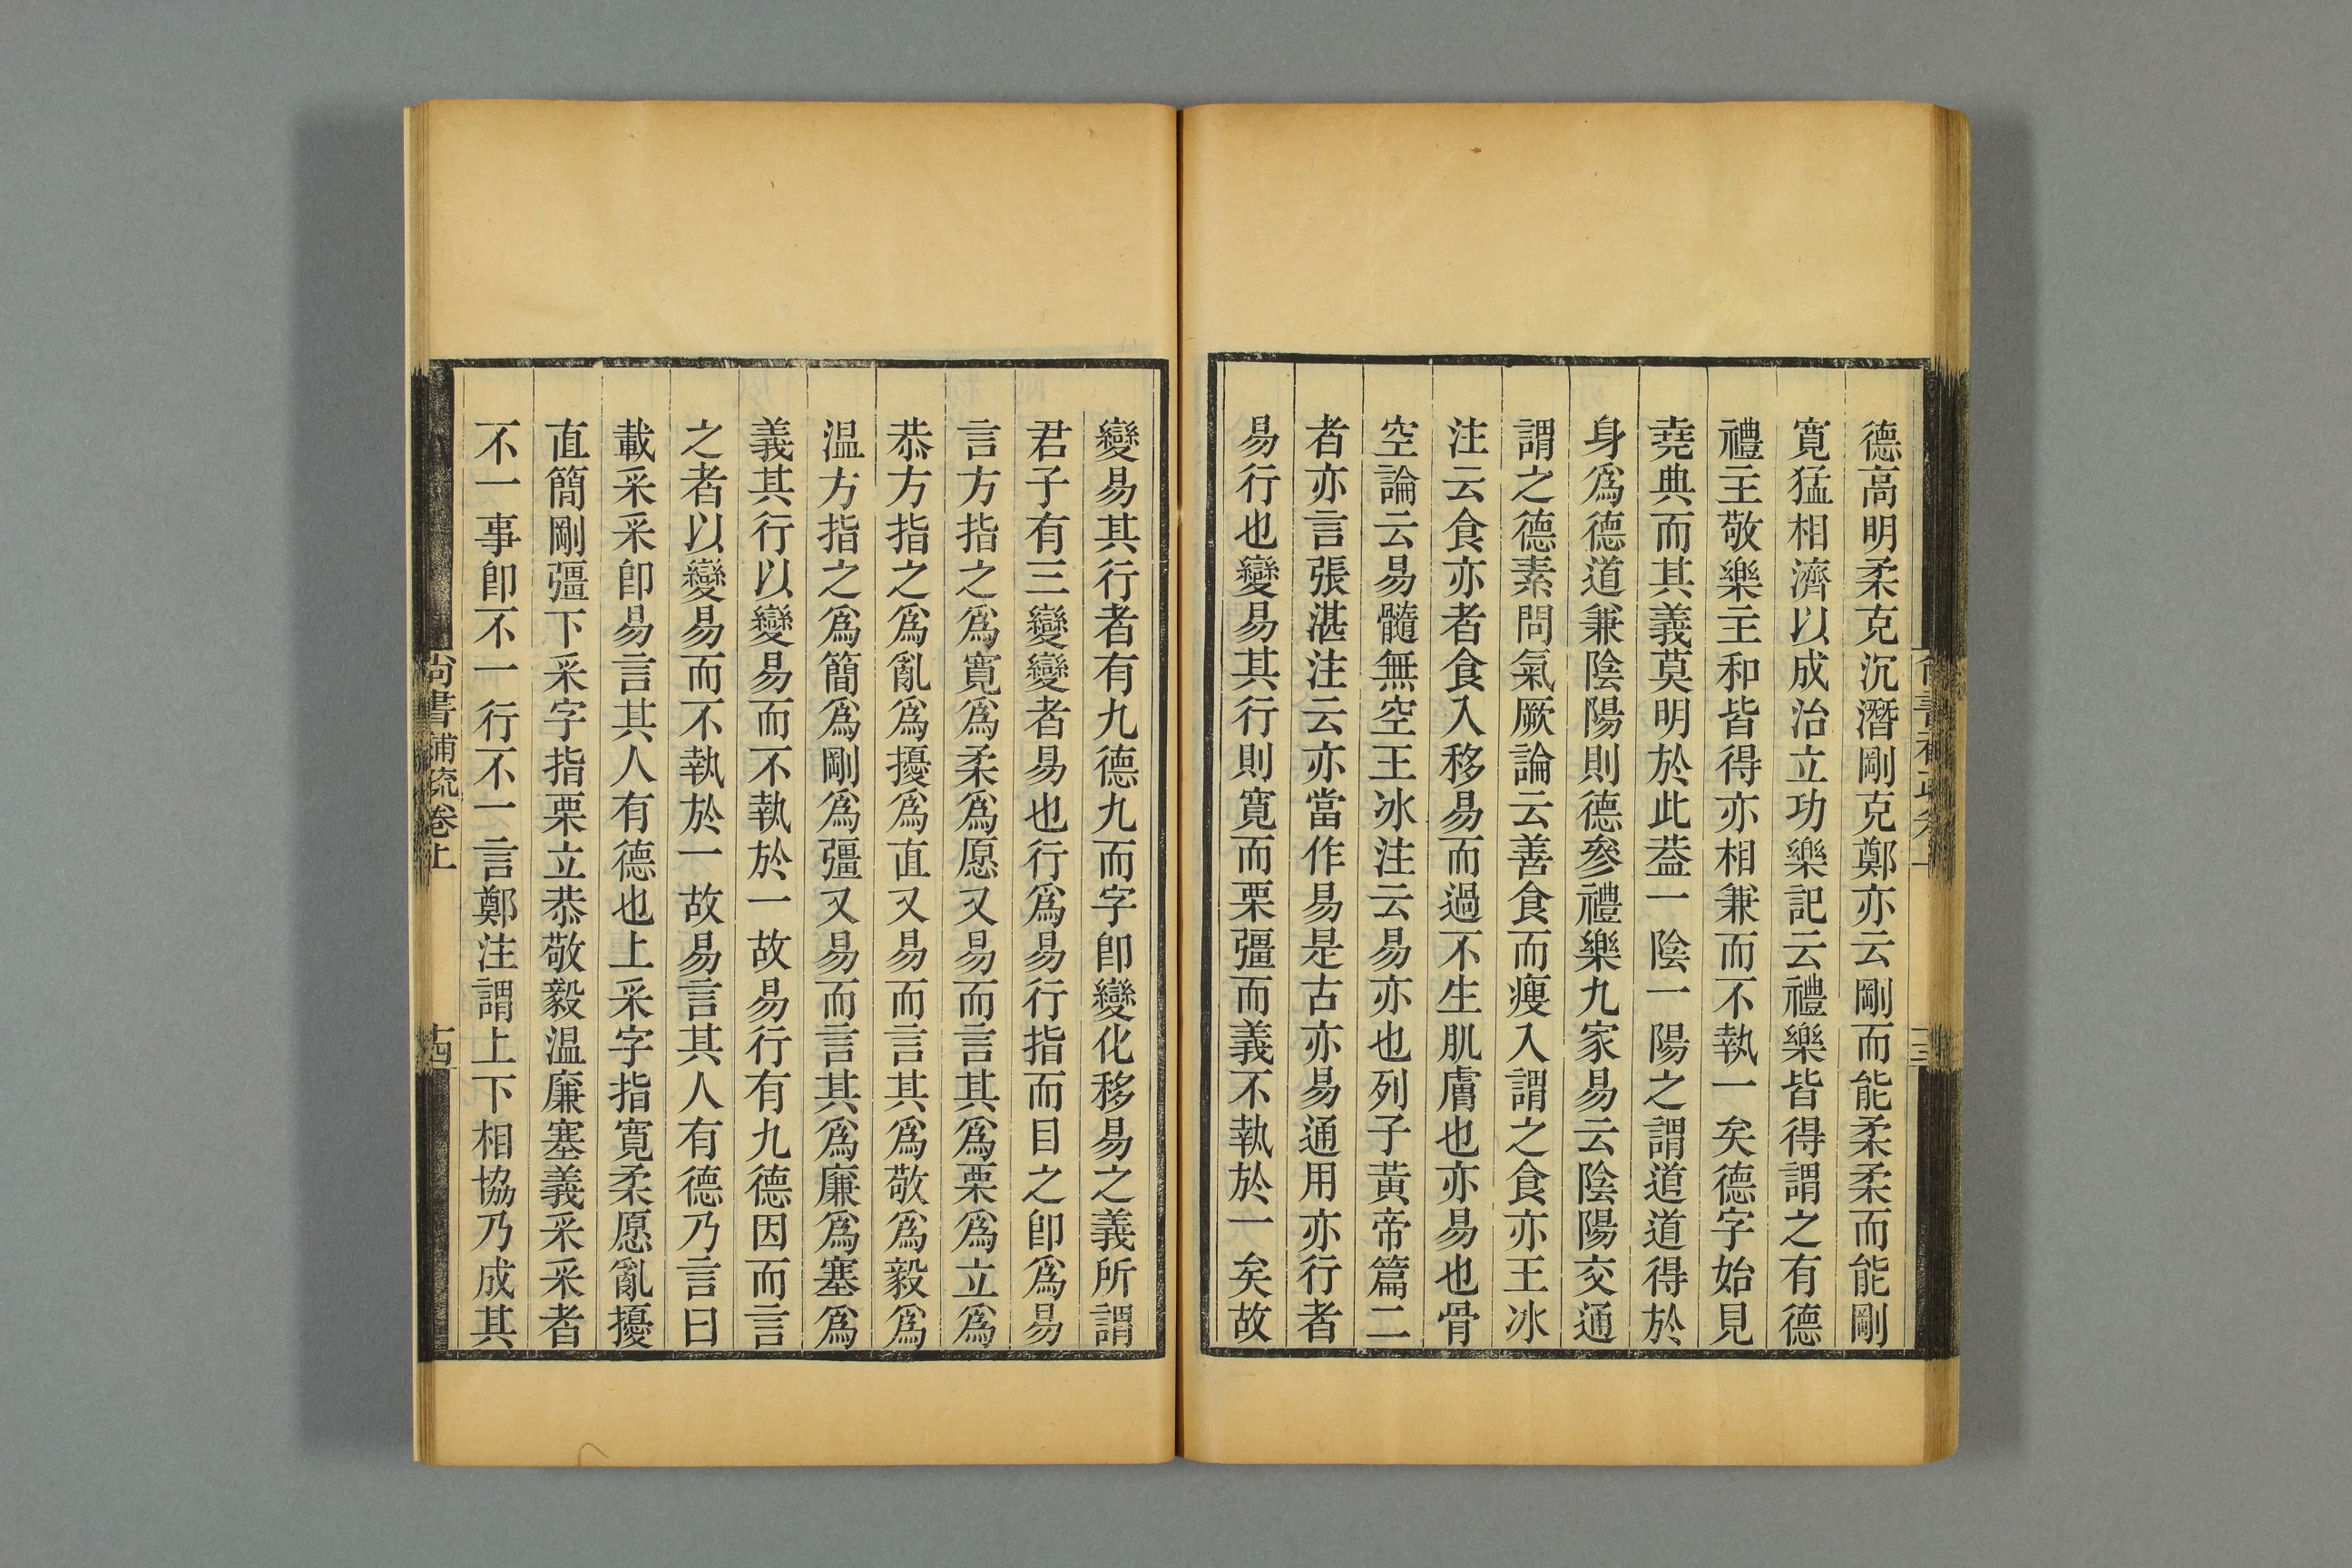 德高明柔克沉潛剛克鄭亦云剛而能柔柔而能剛
寬猛相濟以成治立功樂記云禮樂皆得謂之有德
禮主敬樂主和皆得亦相兼而不執一矣德字始見
堯典而其義莫明於此葢一陰一陽之謂道道得於
身爲德道兼陰陽則德參禮樂九家易云陰陽交通
謂之德素問氣厥論云善食而瘦入謂之食亦王冰
注云食亦者食入移易而過不生肌膚也亦易也骨
空論云易髓無空王冰注云易亦也列子黃帝篇二
者亦言張湛注云亦當作易是古亦易通用亦行者
易行也變易其行則寬而栗彊而義不執於一矣故
變易其行者有九德九而字卽變化移易之義所謂
君子有三變變者易也行爲易行指而目之卽爲易
言方指之爲寬爲柔爲愿又易而言其爲栗爲立爲
恭方指之爲亂爲擾爲直又易而言其爲敬爲毅爲
温方指之爲簡爲剛爲彊又易而言其爲廉爲塞爲
義其行以變易而不執於一故易行有九德因而言
之者以變易而不執於一故易言其人有德乃言曰
載采采卽易言其人有德也上采字指寬柔愿亂擾
直簡剛彊下采字指栗立恭敬毅温廉塞義采采者
不一事卽不一行不一言鄭注謂上下相協乃成其
尚書補疏卷上
十四